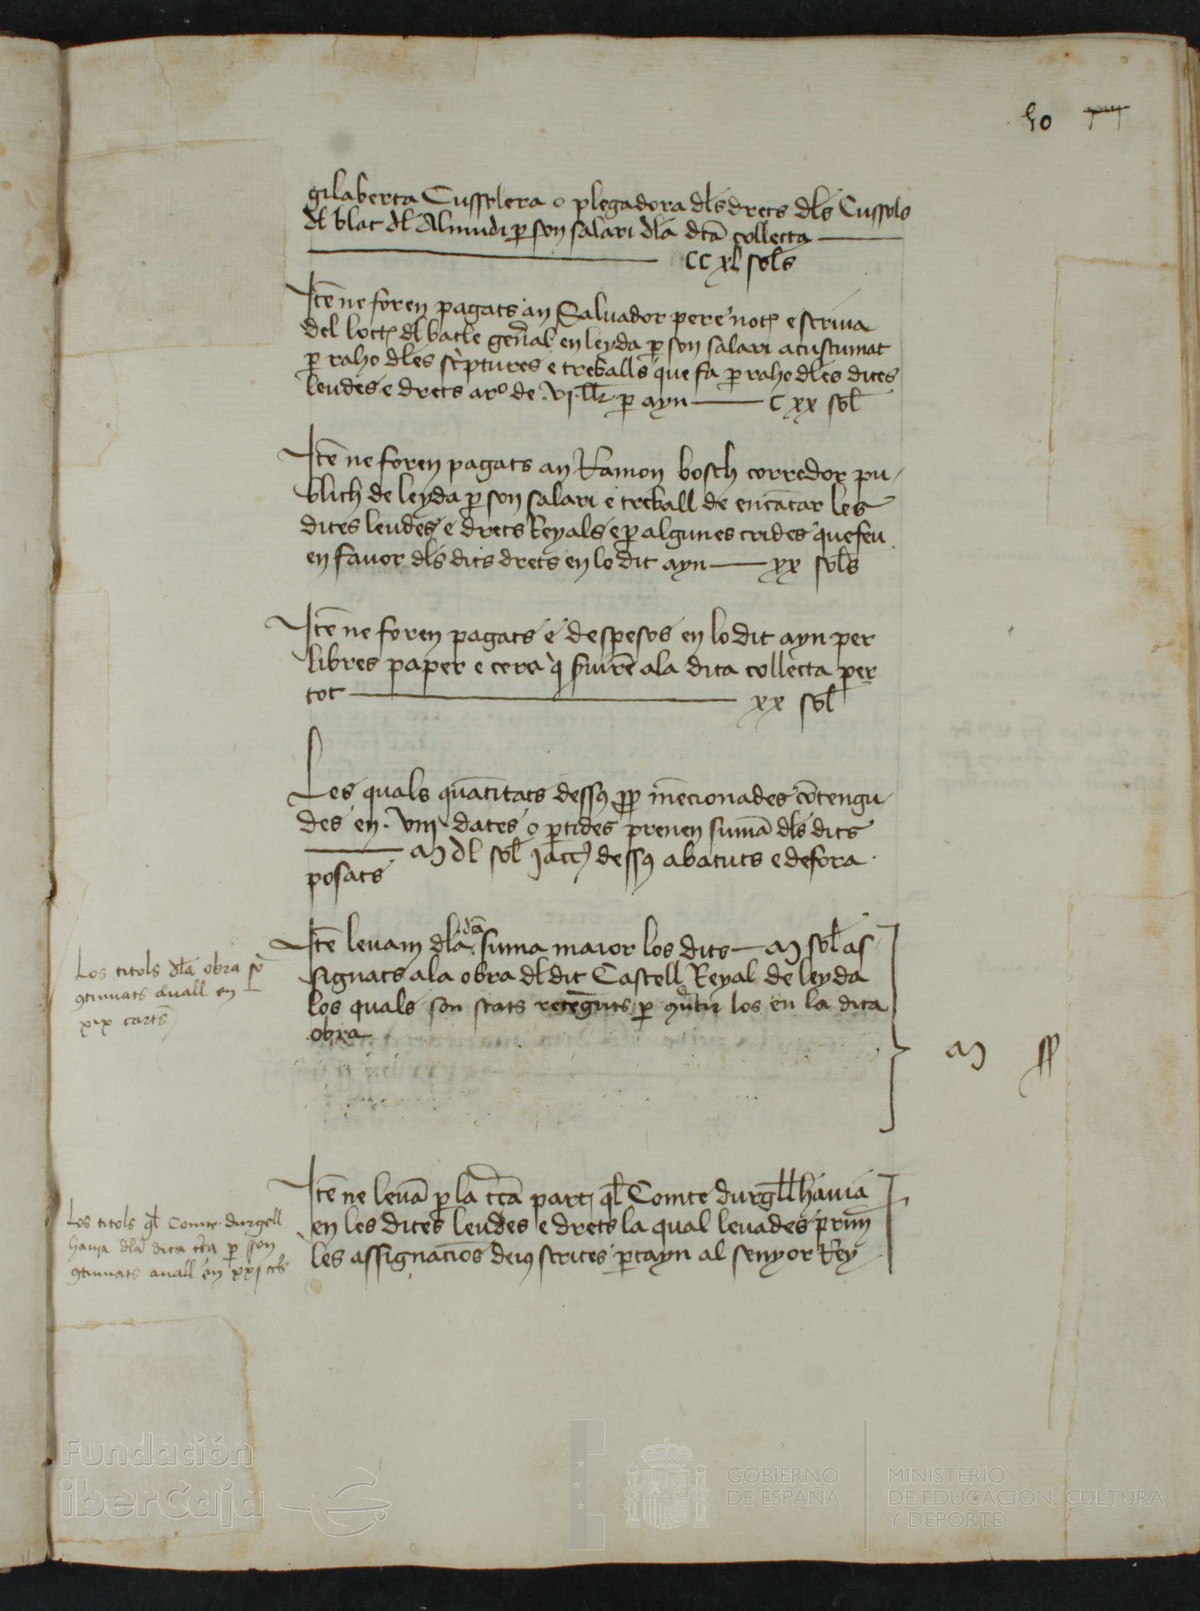 50
gilaberta Cussolera o plegadora dls drets dls Cussols
dl blat dl Almudi p son salari dla dta collecta
CC xl sols
Ite ne foren pagats an Salvador pere not escriva
del loct dl batle general en leyda p son salari acustumat
p raho dles scptures e treballs que fa p raho dles dites
leudes e drets a ro de .vi. p ayn C xx sol
Ite ne foren pagats an Ramon bosch corredor pu
blich de leyda p son salari e treball de encatar les
dites leudes e drets Reyals e p algunes crides que feu
en favor dls dits drets en lo dit ayn xx sols
Ite ne foren pagats e despesos en lo dit ayn per
libres paper e cera q serviren ala dita collecta per
tot xx sol
Les quals quatitats dessus mecionades cotengu
des en .viii. dates o ptides prenen suma dls dits
M dl sol dessus abatuts e defora
posats
Ite levam dla dta suma maior los dits M sol as
signats ala obra dl dit Castell Reyal de leyda
los quals son stats retenguts p los en la dita
obra
Los titols dla obra so
9tinuats avall en
xix cartes
M ss
Ite ne leva p la tcta part ql Comte durgell havia
en les dites leudes e drets la qual levades prim
les assignacios deius scrites ptayn al senyor Rey
Los titols ql Comte durgell
havia dla dita p son
9tinuats avall en xxi
Fundación
iberCaja
GOBIERNO
DE ESPAÑA
MINISTERIO
DE EDUCACIÓN, CULTURA
Y DEPORTE